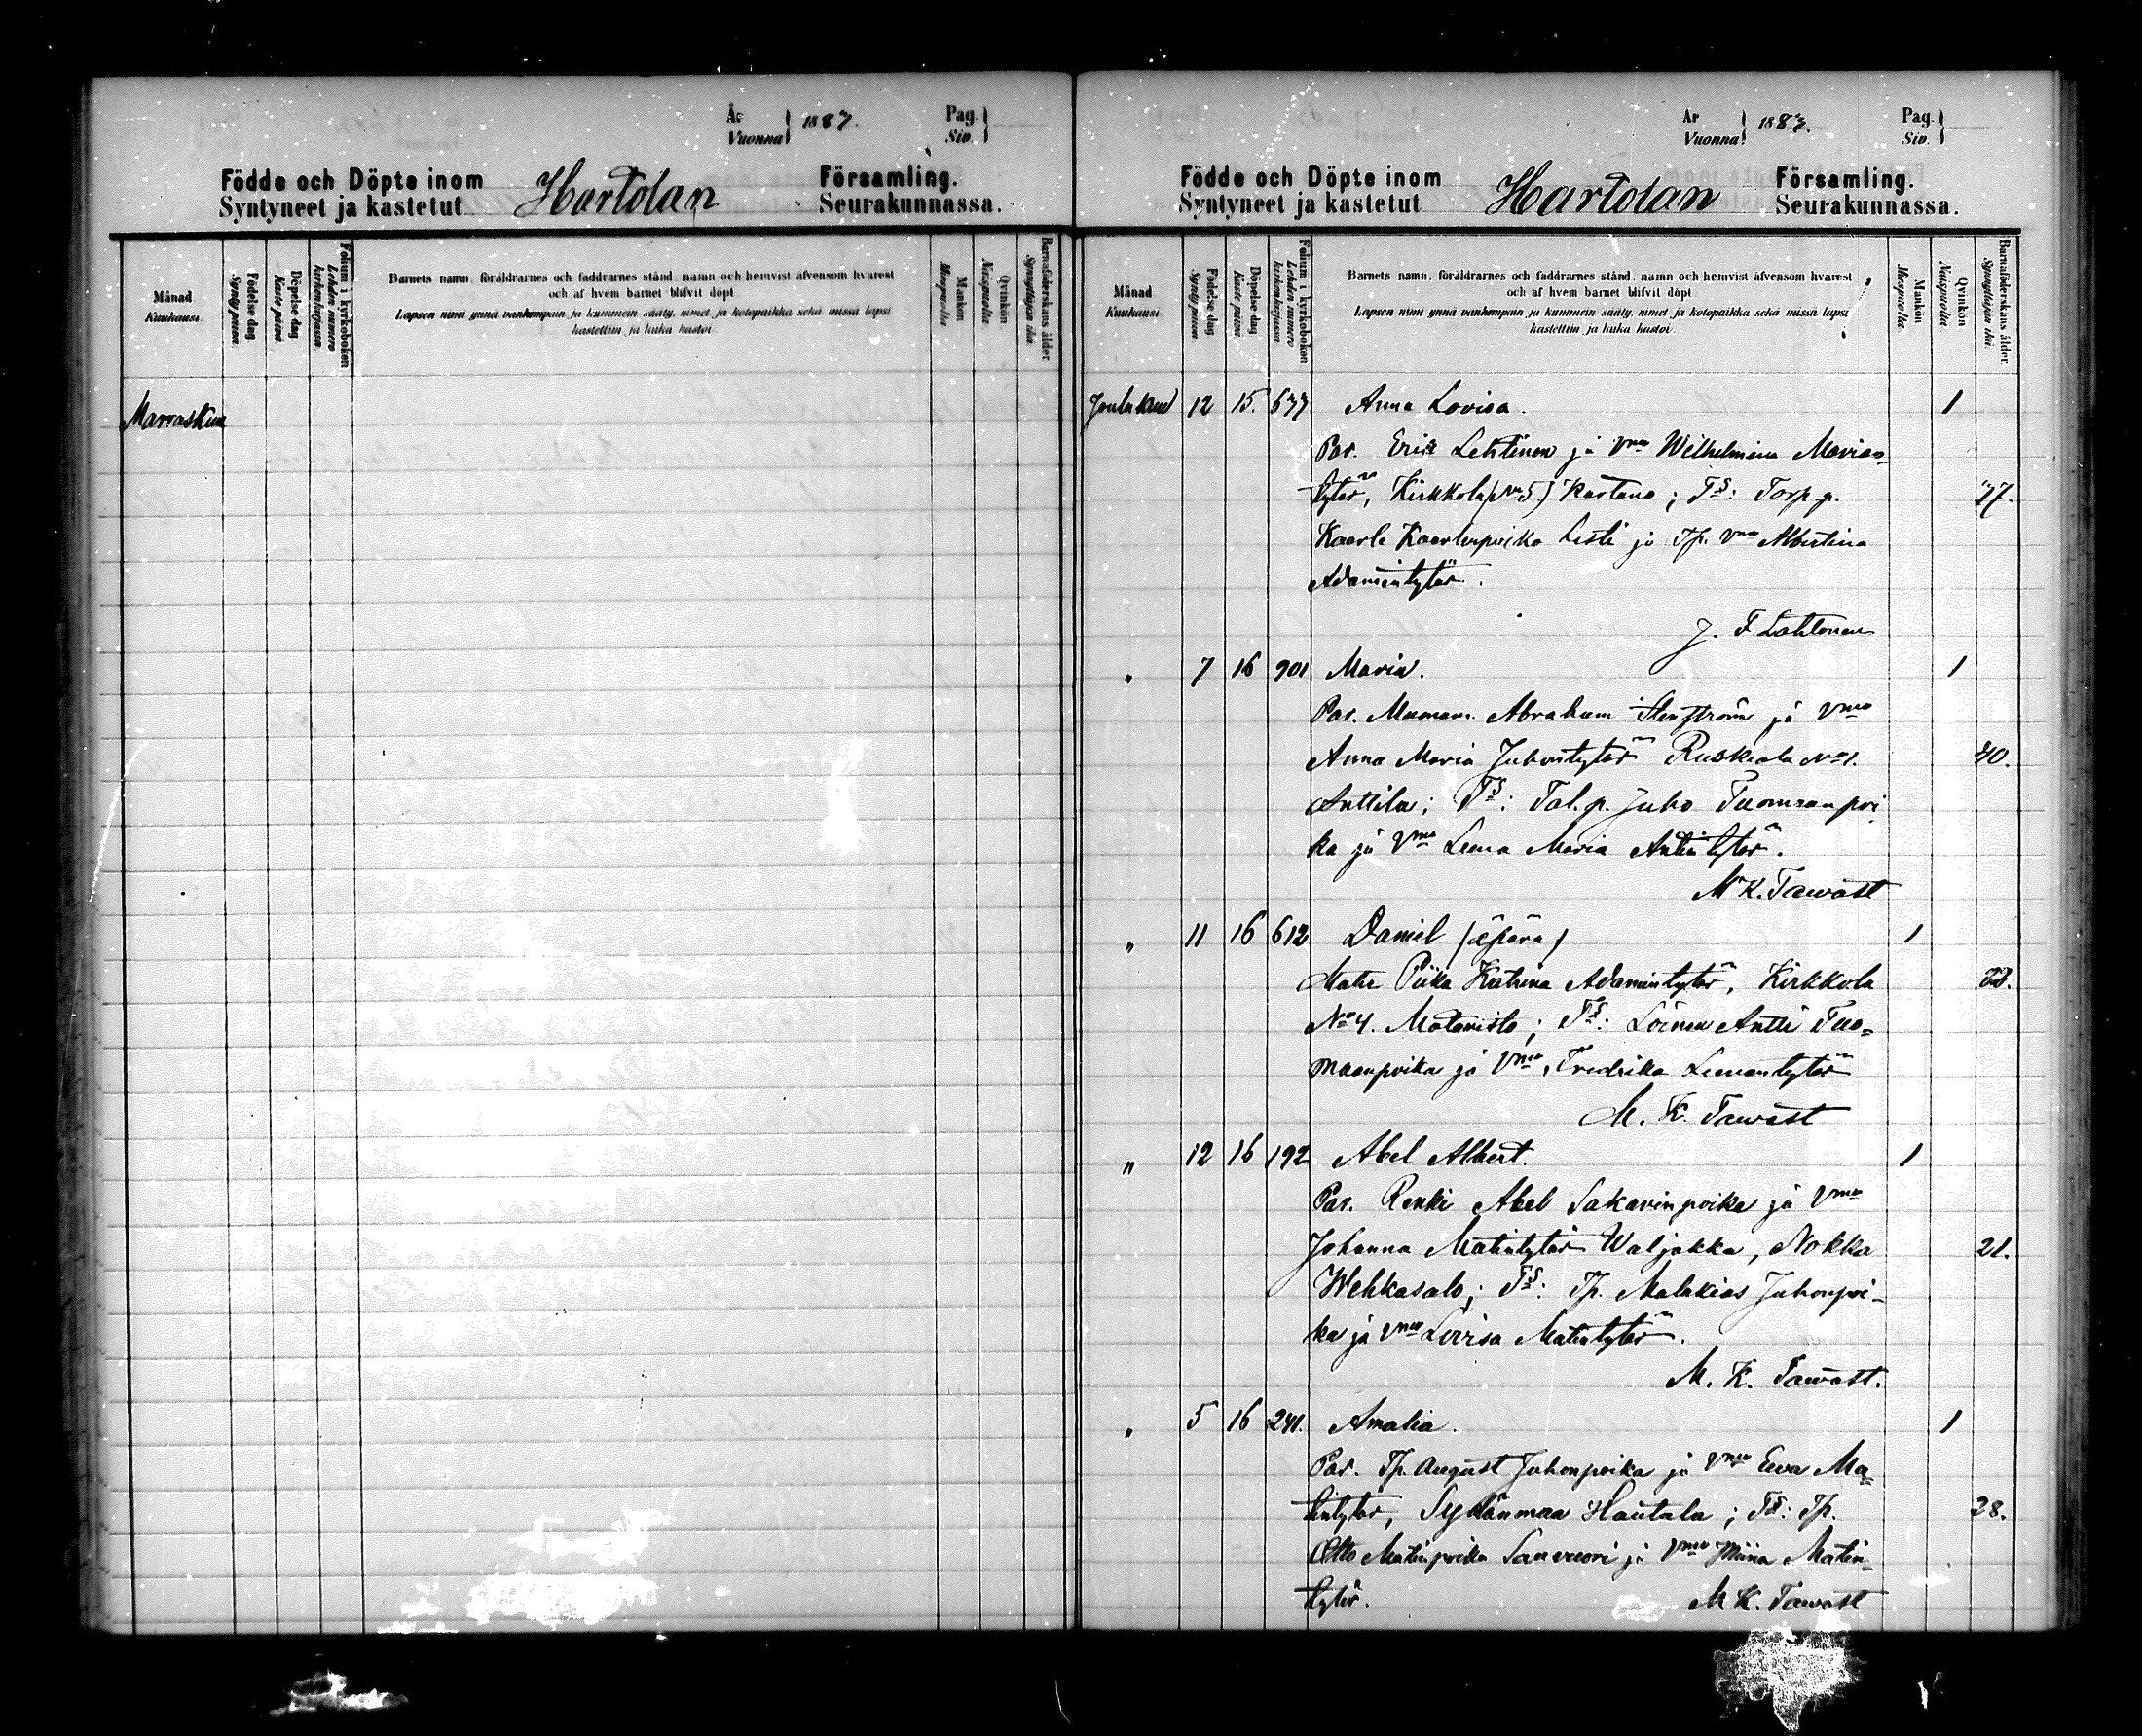 År
Vuonna } 1887.
Pag.
Siv. }
Födde och Döpte inom
Syntyneet ja kastetut
Hartolan
Församling.
Seurakunnassa.
Månad
Kuukausi
Födelse dag
Synty päivä.
Döpelse dag
Kaste päivä
Folium i kyrkoboken
Lehden numero kirkonkirjassa.
Barnets namn, föräldrarnes och faddrarnes stånd, namn och hemvist äfvensom hvarest
och af hvem barnet blifvit döpt
Lapsen nimi ynnä vanhempain ja kummein sääty, nimet ja kotopaikka sekä missä lapsi
kastettiin ja kuka kastoi
Mankön
Miespuolta
Qvinkön
Naispuolta
Barnaföderskans ålder
Synnyttäjän ikä.
Marraskuu
År
Vuonna } 1887.
Pag.
Siv. }
Födde och Döpte inom
Syntyneet ja kastetut
Hartolan
Församling.
Seurakunnassa.
Månad
Kuukausi
Födelse dag
Synty päivä
Döpelse dag
Kaste päivä
Folium i kyrkoboken
Lehden numero kirkonkirjassa
Barnets namn, föräldrarnes och faddrarnes stånd, namn och hemvist äfvensom hvarest
och af hvem barnet blifvit döpt
Lapsen nimi ynnä vanhempain ja kummein sääty, nimet ja kotopaikka sekä missä lapsi
kastettiin ja kuka kastoi.
Mankön
Miespuolta.
Qvinkön
Naispuolta
Barnaföderskans ålder
Synnyttäjän ikä.
Joulukuu 12 15. 677 Anna Lovisa. 1
Par. Erik Lehtinen ja Vmo Wilhelmina Marian=
tytär, Kirkkola (No 5) Rastano; TS: Torp. p.
Kaarle Kaarlenpoika Lesti ja Tp. Vmo Albertina
Adamintytär.
J. F Lahtonen
" 7 16 901 Maria. 1
Par. Mumam. Abraham Stenström ja Vmo
Anna Maria Juhontytär Ruskeala No 1. 40.
Anttila; TS: Tal. p. Juho Tuomaanpoi
ka ja Vmo Leena Maria Antintytär.
M K. Tawast
" 11 16 612 Daniel (äpärä) 1
Mater Piika Katrina Adamintytär, Kirkkola
No 4. Mataristo; TS: Loinen Antti Tuo=
maanpoika ja Vmo Fredrika Leenantytär
M. K. Tawast
" 12 16 192 Abel Albert. 1
Par. Renki Abel Sakarinpoika ja Vmo
Johanna Matintytär Waljakka, Nokka 21.
Wehkasalo; TS: Tp. Malakias Juhonpoi-
ka ja Vmo Loviisa Matintytär.
M. K. Tawast.
" 5 16 241. Amalia. 1
Par. Tp. August Juhonpoika ja Vmo Eeva Ma=
tintytär, Sydänmaa Hautala; TS: Tp. 28.
Otto Matinpoika Sanvuori ja Vmo Miina Matin-
tytär. M K. Tawast